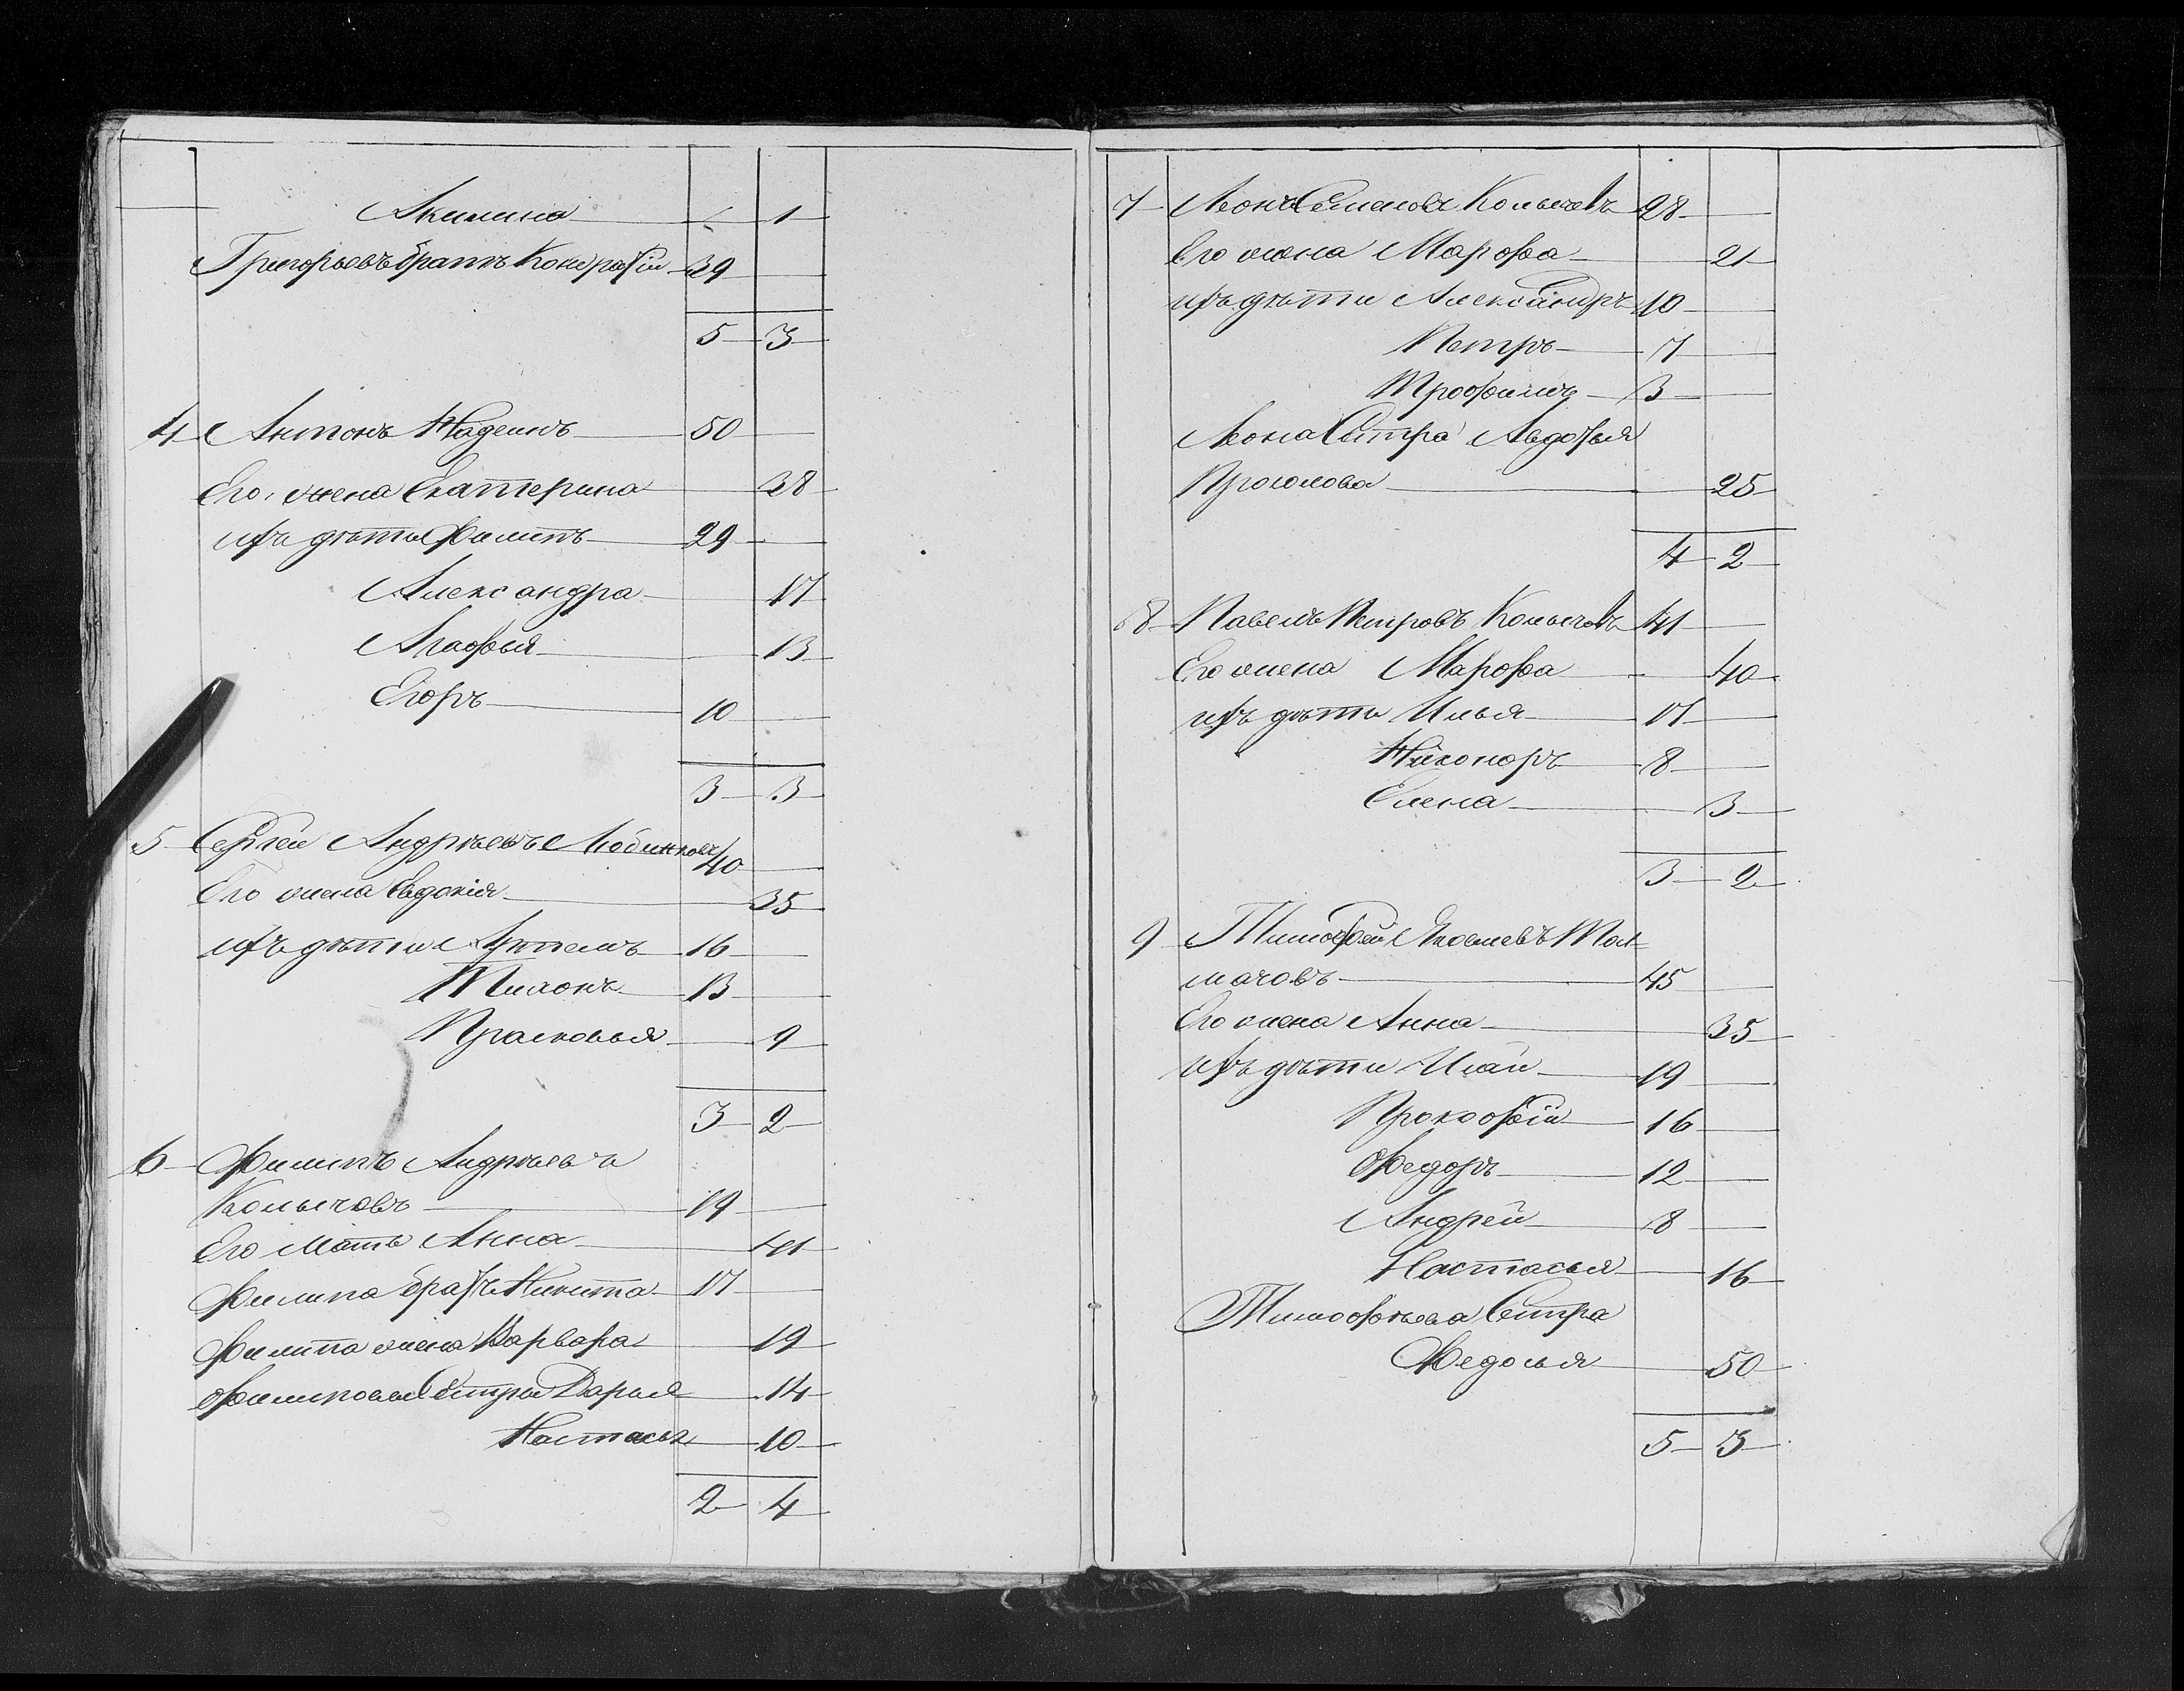 Акилина 1
Григорьевъ братъ Кондратій 39
5 3
4 Антонъ Надеинъ 50
Его жена Екатерина 38
ихъ дѣти Филипъ 29
Александра 17
Агафья 13
Егоръ 10
3 3
5 Сергей Андрѣевъ 40
Его жена Евдокія 35
ихъ дѣти Артемъ 16
Тихонъ 13
Прасковья 9
3 2
6 Филипъ Андрѣевъ
Колычовъ 19
Его Мать Анна 41
Филипа братъ Никита 17
Филипа жена Варвара 19
Филиповы Сестры Дарья 14
Настасья 10
2 4
7 Леонъ Семеновъ Колычовъ 28
Его жена Марфа 21
ихъ дѣти Александръ 10
Петръ 7
Трофимъ 3
Леона Сестра Авдотья
25
4 2
8 Павелъ Петровъ Колычовъ 41
Его жена Марфа 40
ихъ дѣти Илья 17
Никоноръ 8
Елена 3
3 2
9 Тимофей Яковлевъ Тол-
мачовъ 45
Его жена Анна 35
ихъ дѣти Исай 19
Прокофій 16
Федоръ 12
Андрей 8
Настасья 16
Тимофѣева Сестра
Федосья 50
5 3